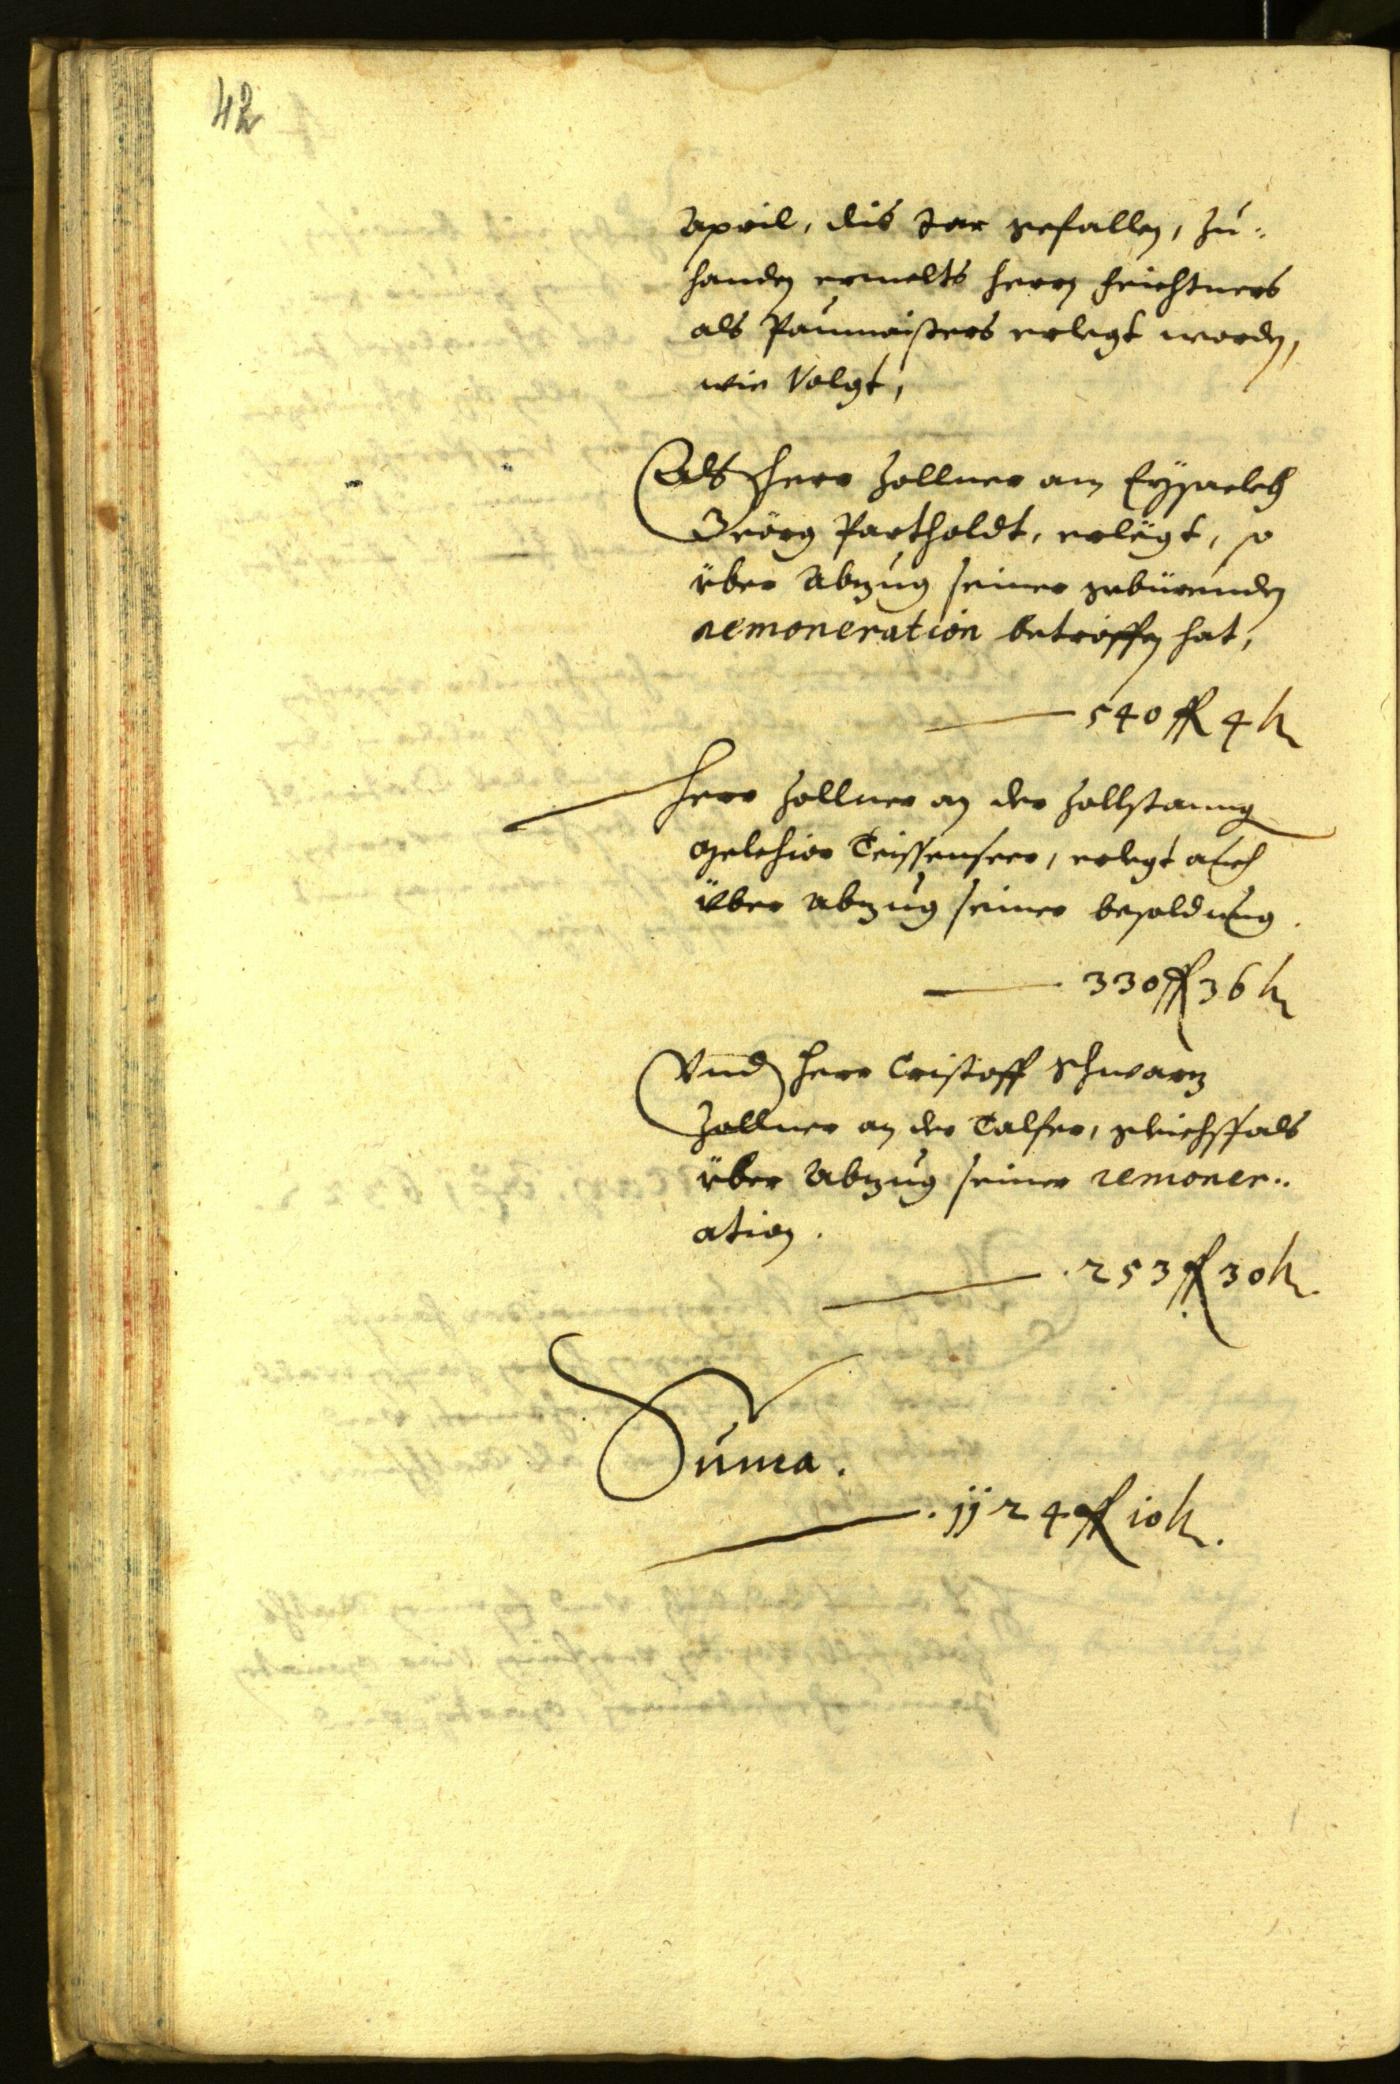 42
April, dis Jar gefallen, zu¬
handen ermelts herrn Feichtners
als Paumaisters erlegt worden,
wie Volgt,
Als Herr Zollner am Eysackh
Geörg Partholdt, erlegt, so
über Abzug seiner gebürenden
remoneration betroffen hat,
540 fl 4 kr
Herr Zollner an der Zollstanng
Melchior Teissenseer, erlegt auch
über abzug seiner besoldung.
330 fl 36 kr
Vnd Herr Cristoff Schwarz
Zollner an der Talfer, gleichssfals
über Abzug seiner remoner¬
ation.
253 fl 30 kr.
Suma.
1124 fl 10 kr.